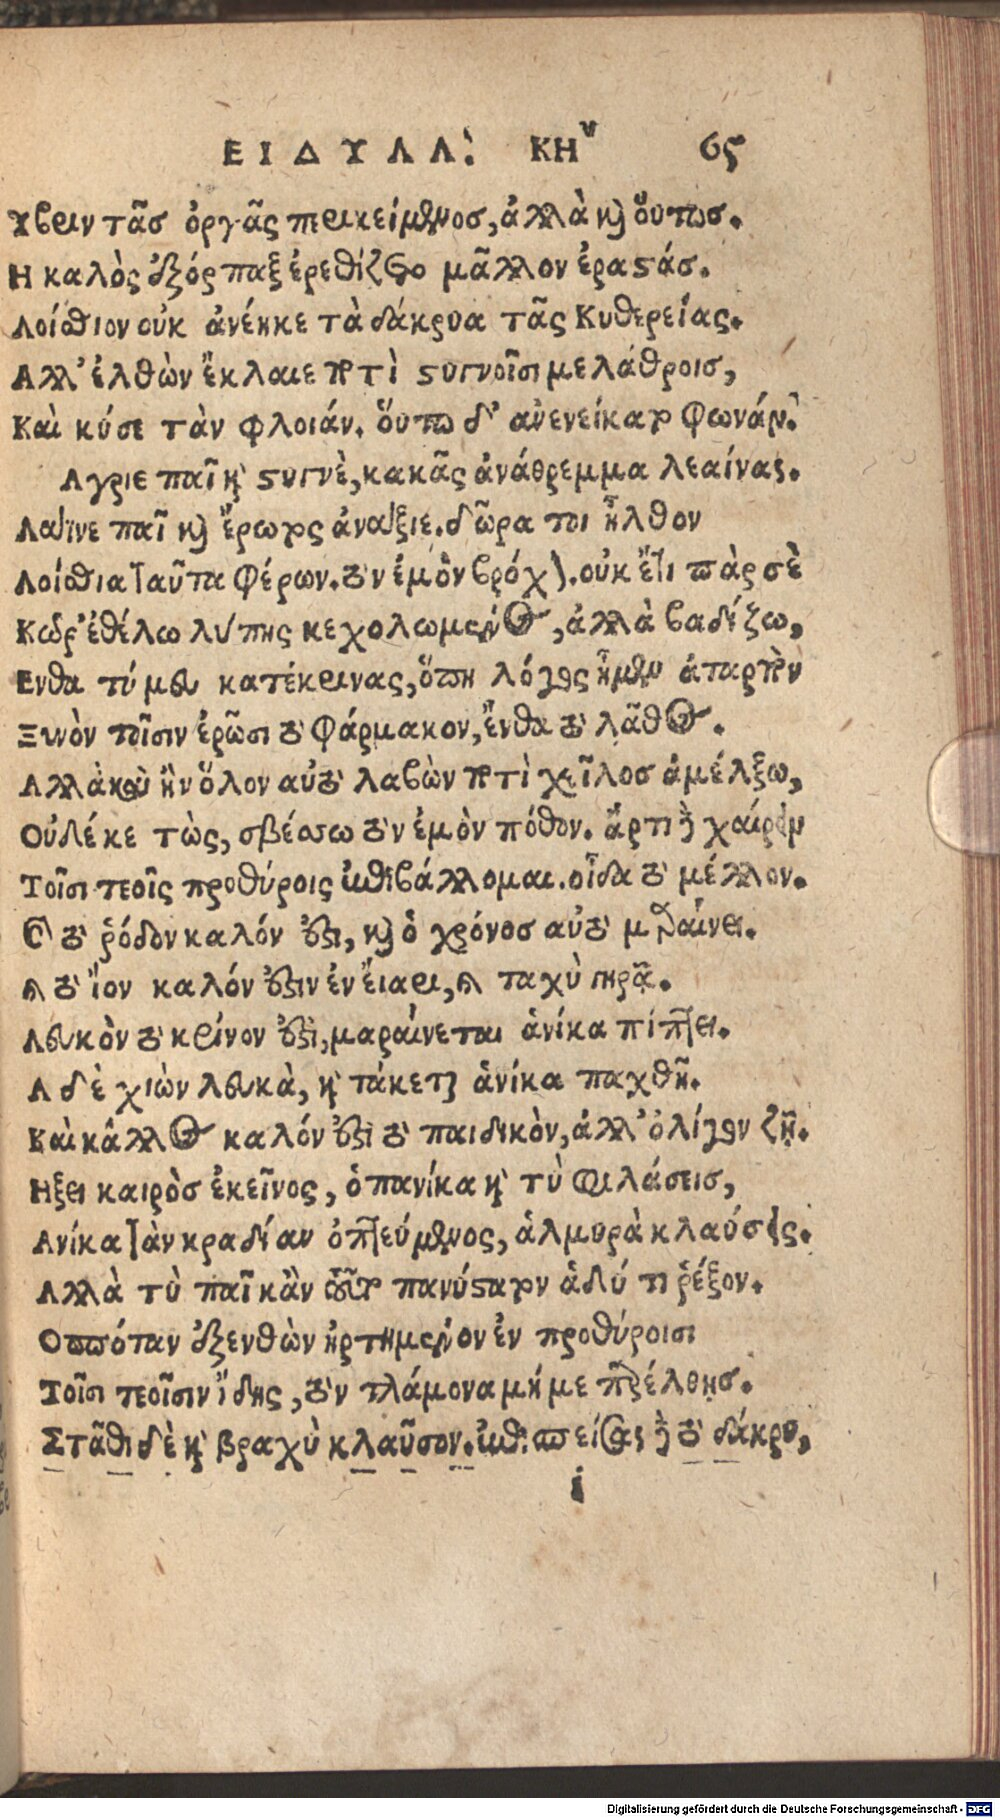 ΕΙΔΥΛΛ. ΚΗʹ 65
Υβριν τᾶσ ὀργᾶς περικείμενοσ, ἀλλὰ καὶ οὕτωσ.
Η καλὸς ἐξόρπαξ ἐρεθίζετο μᾶλλον ἐραστάσ.
Λοίσθιον οὐκ ἀνέηκε τὰ δάκρυα τᾶς Κυθερείας.
Αλλ' ἐλθὼν ἔκλαιε ποτὶ στυγνοῖσι μελάθροισ,
Καὶ κύσε τὰν φλοιάν. οὕτω δ' ἀνενείκατο φωνάν.
Αγριε παῖ καὶ στυγνὲ, κακᾶς ἀνάθρεμμα λεαίνας.
Λαΐνε παῖ καὶ ἔρωτος ἀνάξιε. δῶρα τοι ἦλθον
Λοίσθια ταῦτα φέρων. τὸν ἐμὸν βρόχον. οὐκ ἔτι πὰρ σὲ
Κῶρ' ἐθέλω λύπης κεχολωμένος, ἀλλὰ βαδίζω,
Ενθα τύ μευ κατέκρινας, ὅπη λόγος ἦμεν ἀταρπὸν
Ξυνὸν τοῖσιν ἐρῶσι τὸ φάρμακον, ἔνθα τὸ λᾶθος.
Αλλὰ καὶ ἢν ὅλον αὐτὸ λαβὼν ποτὶ χεῖλοσ ἀμέλξω,
Οὐδέ κε τὼς, σβέσσω τὸν ἐμὸν πόθον. ἄρτι δὲ χαίρειν
Τοῖσι τεοῖς προθύροις ἐπιβάλλομαι. οἶδα τὸ μέλλον.
Καὶ τὸ ῥόδον καλόν ἐστι, καὶ ὁ χρόνοσ αὐτὸ μαραίνει.
Καὶ τὸ ἴον καλόν ἐστιν ἐν εἴαρι, καὶ ταχὺ γηρᾷ.
Λευκὸν τὸ κρίνον ἐστὶ, μαραίνεται ἁνίκα πίπτει.
Α δὲ χιὼν λευκὰ, καὶ τάκεται ἁνίκα παχθῇ.
Καὶ κάλλος καλόν ἐστι τὸ παιδικὸν, ἀλλ' ὀλίγον ζῇ.
Ηξει καιρὸσ ἐκεῖνος, ὁπανίκα καὶ τὺ φιλάσεισ,
Ανίκα τὰν κραδίαν ὀπτεύμενος, ἁλμυρὰ κλαύσεις.
Αλλὰ τὺ παῖ κἂν τοῦτο πανύστατον ἁδύ τι ῥέξον.
Οππόταν ἐξενθὼν ἠρτημένον ἐν προθύροισι
Τοῖσι τεοῖσιν ἴδης, τὸν τλάμονα μή με παρέλθῃσ.
Στᾶθι δὲ καὶ βραχὺ κλαῦσον. ἐπισπείσας δὲ τὸ δάκρυ,
i
Digitalisierung gefördert durch die Deutsche Forschungsgemeinschaft - DFG